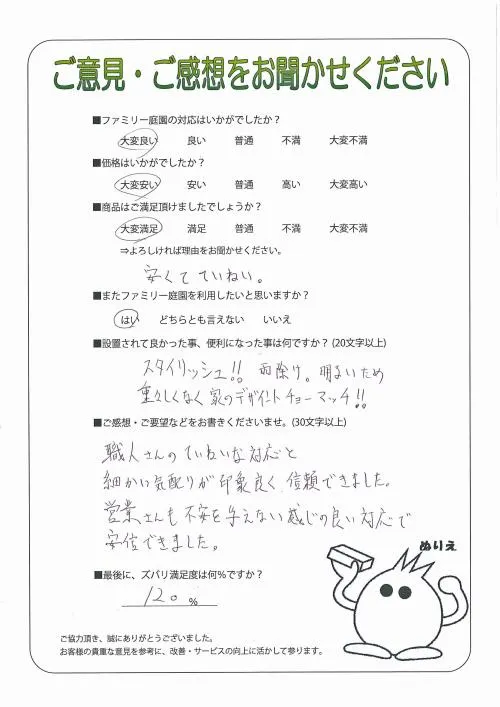 ご意見・ご感想をお聞かせください
■ファミリー庭園の対応はいかがでしたか？
大変良い　良い　普通　不満　大変不満
■価格はいかがでしたか？
大変安い　安い　普通　高い　大変高い
■商品はご満足頂けましたでしょうか？
大変満足　満足　普通　不満　大変不満
⇒よろしければ理由をお聞かせください。
安くて ていねい。
■またファミリー庭園を利用したいと思いますか？
はい　どちらとも言えない　いいえ
■設置されて良かった事、便利になった事は何ですか？(20文字以上)
スタイリッシュ!! 雨除け。明るいため
重々しくなく 家のデザイントチョーマッチ!!
■ご感想・ご要望などをお書きくださいませ。(30文字以上)
職人さんのていねいな対応と
細かい気配りが印象良く、信頼できました。
営業さんも不安を与えない感じの良い対応で
安信できました。
ぬりえ
■最後に、ズバリ満足度は何％ですか？
120 ％
ご協力頂き、誠にありがとうございました。
お客様の貴重な意見を参考に、改善・サービスの向上に活かして参ります。